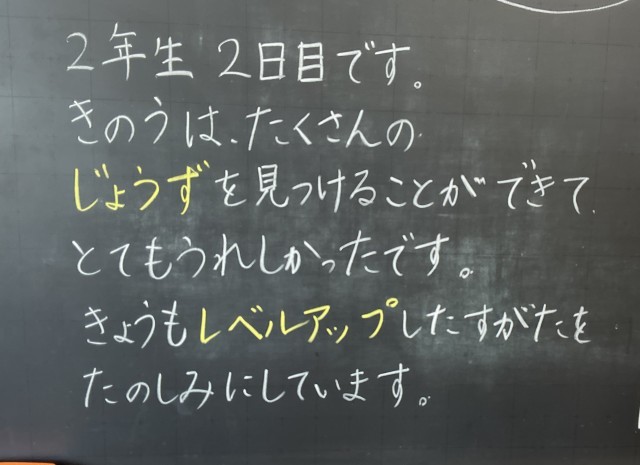 2年生 2日目です。
きのうは、たくさんの
じょうずを見つけることができて、
とてもうれしかったです。
きょうもレベルアップしたすがたを
たのしみにしています。